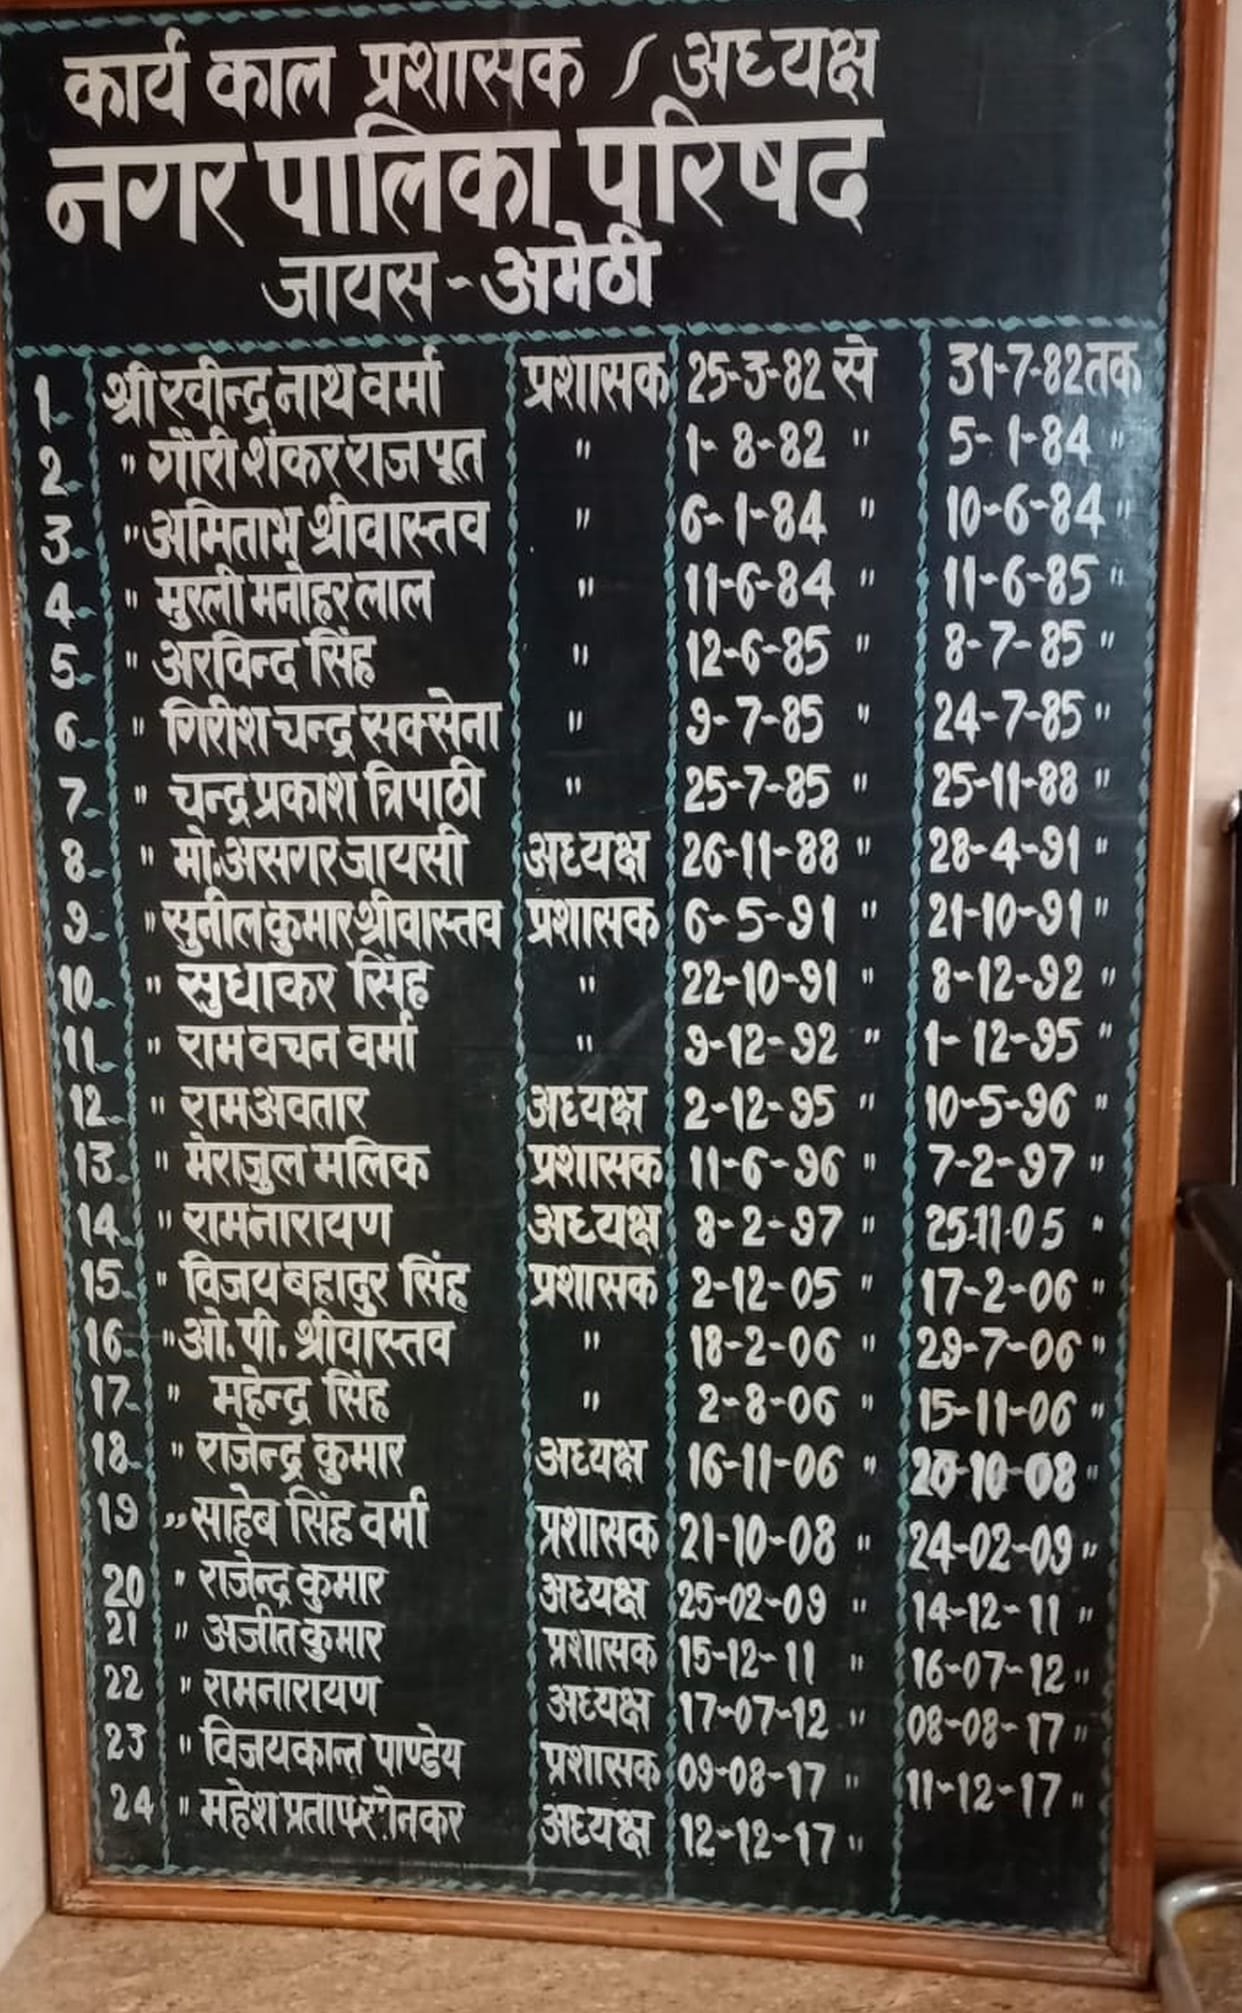 कार्य काल प्रशासक / अध्यक्ष
नगर पालिका परिषद
जायस - अमेठी
1- श्री रवीन्द्र नाथ वर्मा प्रशासक 25-3-82 से 31-7-82 तक
2- " गौरी शंकर राजपूत " 1-8-82 " 5-1-84 "
3- " अमिताभ श्रीवास्तव " 6-1-84 " 10-6-84 "
4- " मुरली मनोहर लाल " 11-6-84 " 11-6-85 "
5- " अरविन्द सिंह " 12-6-85 " 8-7-85 "
6- " गिरीश चन्द्र सक्सेना " 9-7-85 " 24-7-85 "
7- " चन्द्र प्रकाश त्रिपाठी " 25-7-85 " 25-11-88 "
8- " मो.असगर जायसी अध्यक्ष 26-11-88 " 28-4-91 "
9- " सुनील कुमार श्रीवास्तव प्रशासक 6-5-91 " 21-10-91 "
10- " सुधाकर सिंह " 22-10-91 " 8-12-92 "
11- " राम वचन वर्मा " 9-12-92 " 1-12-95 "
12- " राम अवतार अध्यक्ष 2-12-95 " 10-5-96 "
13- " मेराजुल मलिक प्रशासक 11-6-96 " 7-2-97 "
14- " रामनारायण अध्यक्ष 8-2-97 " 25-11-05 "
15- " विजय बहादुर सिंह प्रशासक 2-12-05 " 17-2-06 "
16- " ओ. पी. श्रीवास्तव " 18-2-06 " 29-7-06 "
17- " महेन्द्र सिंह " 2-8-06 " 15-11-06 "
18- " राजेन्द्र कुमार अध्यक्ष 16-11-06 " 20-10-08 "
19 " साहेब सिंह वर्मा प्रशासक 21-10-08 " 24-02-09 "
20 " राजेन्द्र कुमार अध्यक्ष 25-02-09 " 14-12-11 "
21 " अजीत कुमार प्रशासक 15-12-11 " 16-07-12 "
22 " रामनारायण अध्यक्ष 17-07-12 " 08-08-17 "
23 " विजयकान्त पाण्डेय प्रशासक 09-08-17 " 11-12-17 "
24 " महेश प्रताप सोनकर अध्यक्ष 12-12-17 "